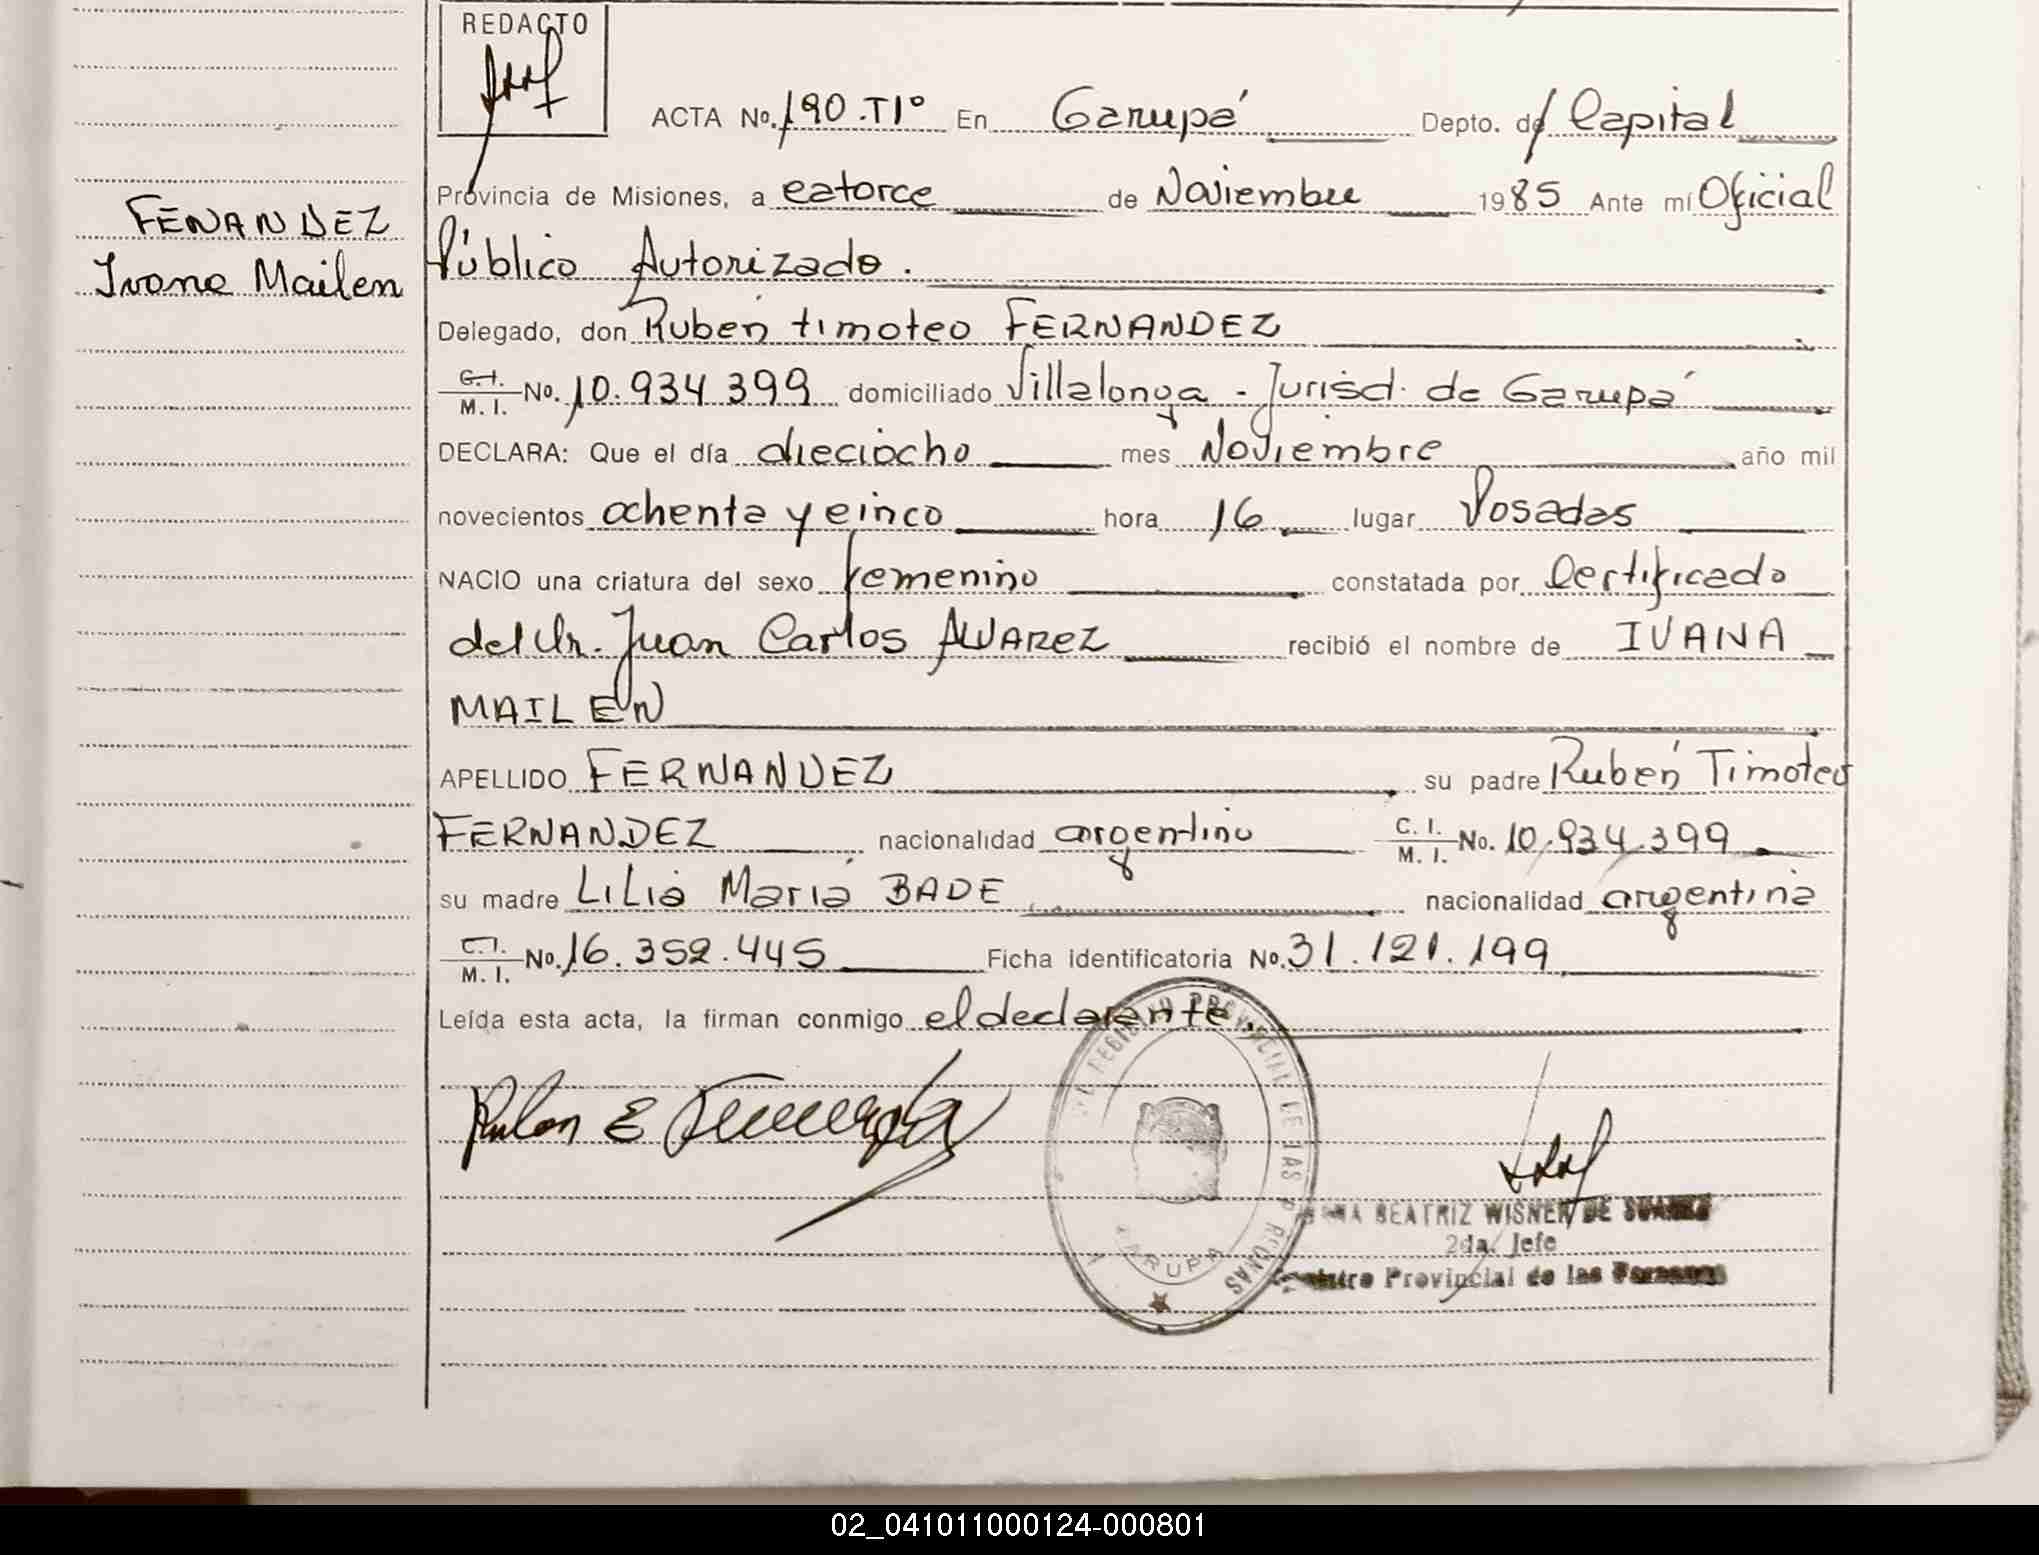 REDACTO
ACTA No. 190.TIº En Garupá Depto. de Capital
Provincia de Misiones, a catorce de Noviembre 1985 Ante mí Oficial
FENANDEZ
Público Autorizado.
Ivana Mailen
Delegado, don Rubén timoteo FERNANDEZ
C.I. M.I. No. 10.934.399 domiciliado Villalonga - Jurisd. de Garupá
DECLARA: Que el día dieciocho mes Noviembre año mil
novecientos ochenta y cinco hora 16 lugar Posadas
NACIO una criatura del sexo femenino constatada por Certificado
del Dr. Juan Carlos ALVAREZ recibió el nombre de IVANA
MAILEN
APELLIDO FERNANDEZ su padre Rubén Timoteo
FERNANDEZ nacionalidad argentino C.I. M.I. No. 10.934.399
su madre LiLia María BADE nacionalidad argentina
C.I. M.I. No. 16.352.445 Ficha identificatoria No. 31.121.199
Leída esta acta, la firman conmigo el declarante.
REGISTRO PROVINCIAL DE LAS PERSONAS
GARUPA
BEATRIZ WISNER DE SUAREZ
2da. Jefe
Registro Provincial de las Personas
02_041011000124-000801